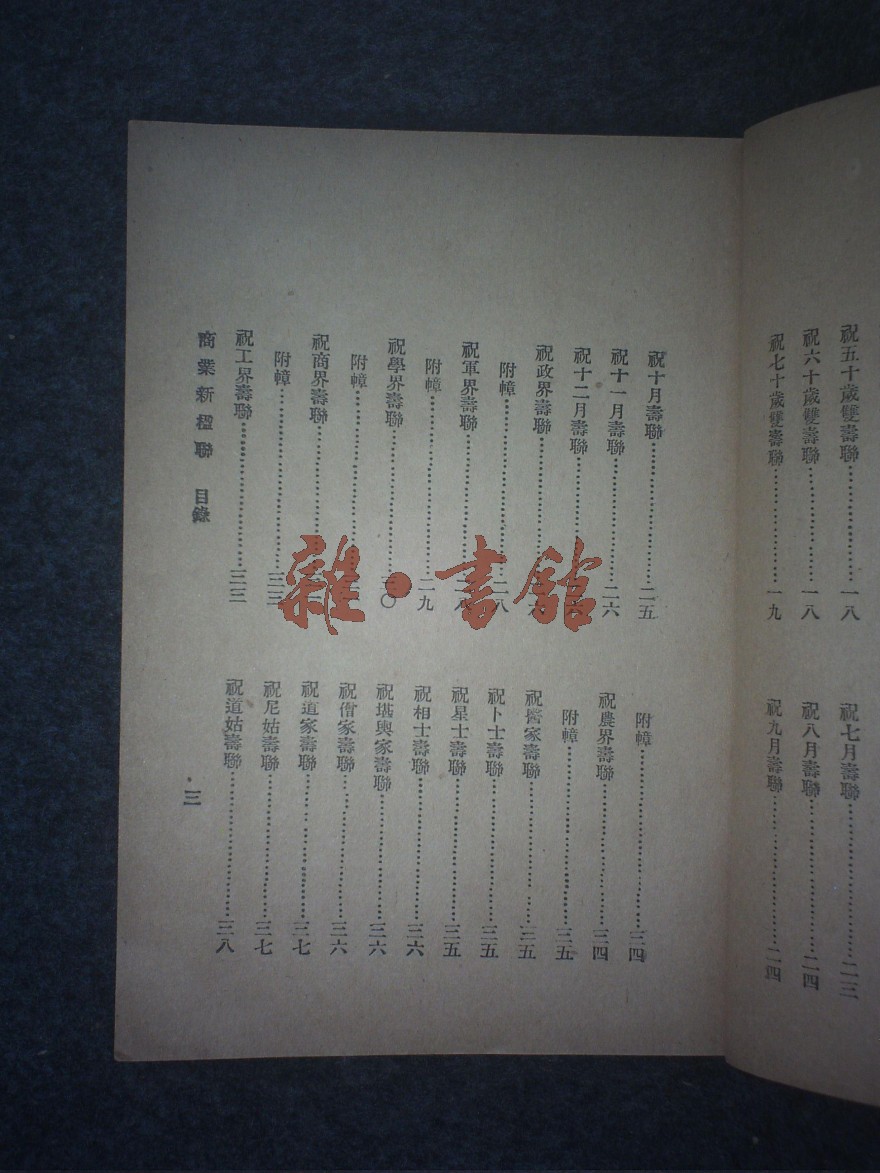 祝五十歲雙壽聯……………一八
祝六十歲雙壽聯……………一八
祝七十歲雙壽聯……………一九
祝七月壽聯……………二三
祝八月壽聯……………二四
祝九月壽聯……………二四
祝十月壽聯……………二五
祝十一月壽聯……………二六
祝十二月壽聯……………
祝政界壽聯……………
附幛……………二八
祝軍界壽聯……………二八
附幛……………二九
祝學界壽聯……………三〇
附幛……………
祝商界壽聯……………
附幛……………三三
祝工界壽聯……………三三
附幛……………三四
祝農界壽聯……………三四
附幛……………三五
祝醫家壽聯……………三五
祝卜士壽聯……………三五
祝星士壽聯……………三五
祝相士壽聯……………三六
祝堪輿家壽聯……………三六
祝僧家壽聯……………三六
祝道家壽聯……………三七
祝尼姑壽聯……………三七
祝道姑壽聯……………三八
商業新楹聯 目錄
三
雜·書館